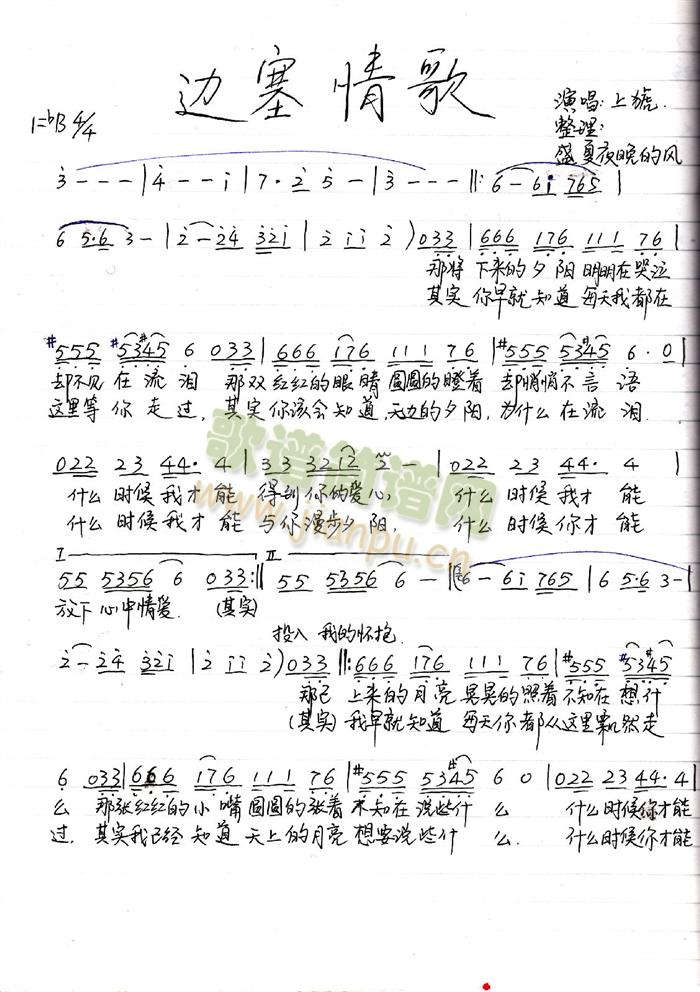 边塞情歌
1=♭B 4/4
演唱:上琥
整理:
盛夏夜晚的风
3 - - - | 4 - - i | 7 · 2 5 - | 3 - - - ‖: 6 - 6i 765 |
6 5·6 3 - | 2 - 24 32i | 2 ii 2 ) 033 | 666 176 111 76 |
那将 下来的夕阳 明明在哭泣
其实 你早就知道 每天我都在
#555 #5345 6 033 | 666 176 111 76 | #555 5345 6 · 0 |
却不见 在流泪 那双 红红的眼睛 圆圆的瞪着 却悄悄不言语
这里等 你走过, 其实 你该会知道, 无力的夕阳, 为什么在流泪.
022 23 44· 4 | 33 3212 2 - | 022 23 44· 4 |
什么 时候我才能 得到你的爱心, 什么 时候我才能
什么 时候我才能 与你漫步夕阳, 什么 时候你才能
I II
55 5356 6 033 :‖ 55 5356 6 - | 6 - 6i 765 | 6 5·6 3 - |
放下心中情爱. (其实)
投入我的怀抱.
2 - 24 32i | 2 ii 2 ) 033 ‖: 666 176 111 76 | #555 #5345
那已 上来的月亮 晃晃的照着 不知在想什
(其实) 我早就知道 每天你都从这里飘然走
6 033 | 666 176 111 76 | #555 5345 6 0 | 022 23 44· 4 |
么 那张红红的小嘴 圆圆的张着 未知在说些什么 什么时候你才能
过. 其实我已经知道 天上的月亮 想要说些什么. 什么时候你才能
歌谱简谱网
www.jianpu.cn